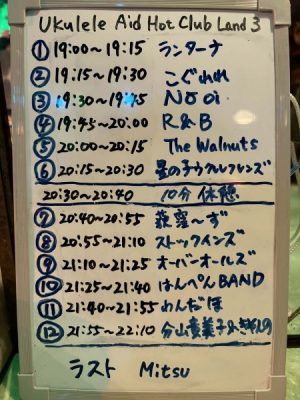 UKulele Aid Hot Club Land 3
① 19:00～19:15 ランターナ
② 19:15～19:30 こぐれれ
③ 19:30～19:45 Nooi
④ 19:45～20:00 R&B
⑤ 20:00～20:15 The Walnuts
⑥ 20:15～20:30 星の子ウクレレフレンズ
20:30～20:40 10分 休憩
⑦ 20:40～20:55 荻窪～ず
⑧ 20:55～21:10 ストックインズ
⑨ 21:10～21:25 オーバーオールズ
⑩ 21:25～21:40 はんぺんBAND
⑪ 21:40～21:55 わんだほ
⑫ 21:55～22:10
ラスト Mitsu